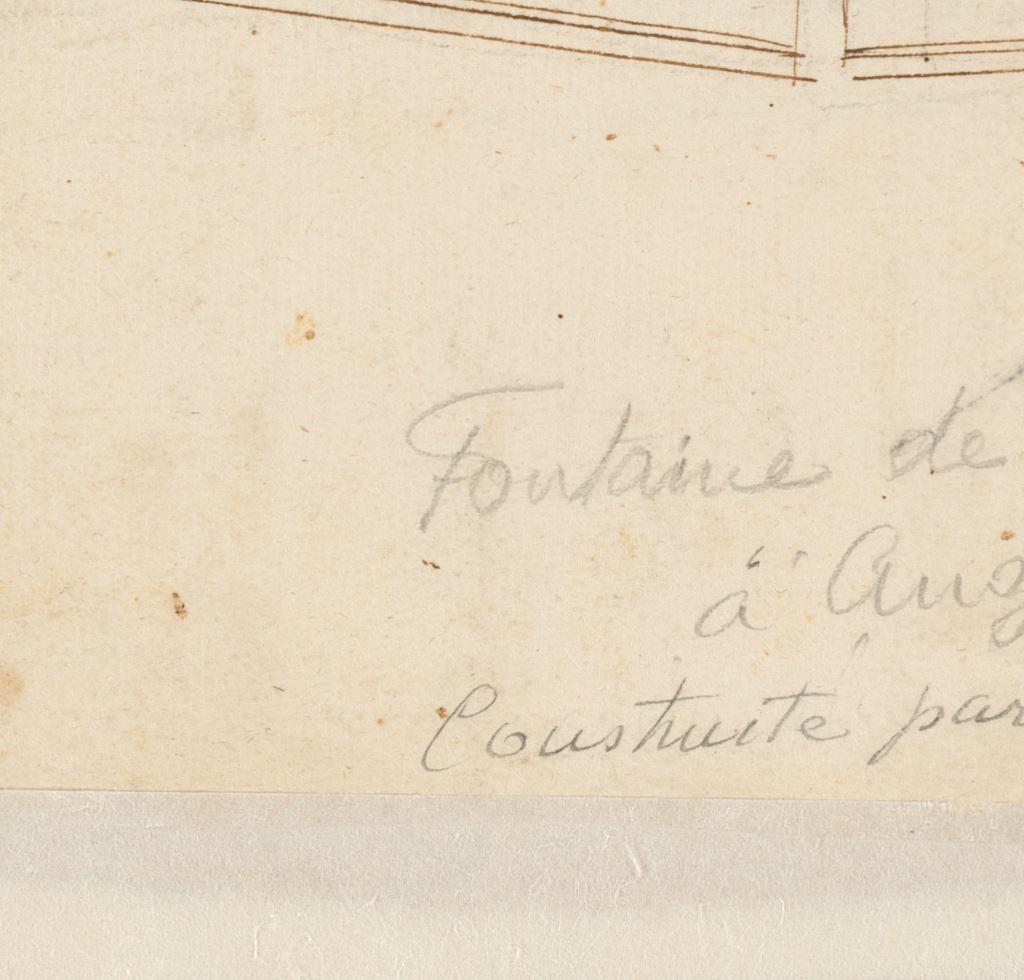 Fontaine de
à Aug
Construite par